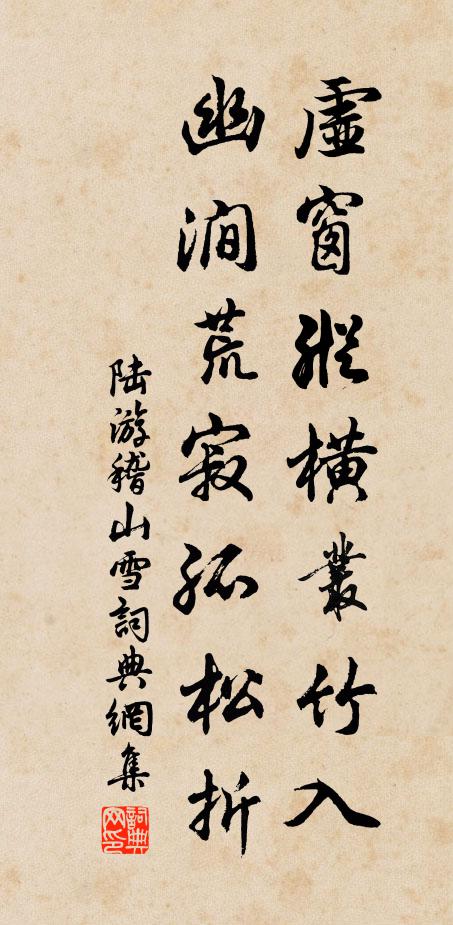 虛窗縱橫叢竹入
幽澗荒寂孤松折
陸游稽山雪詞典網集
詞典网印